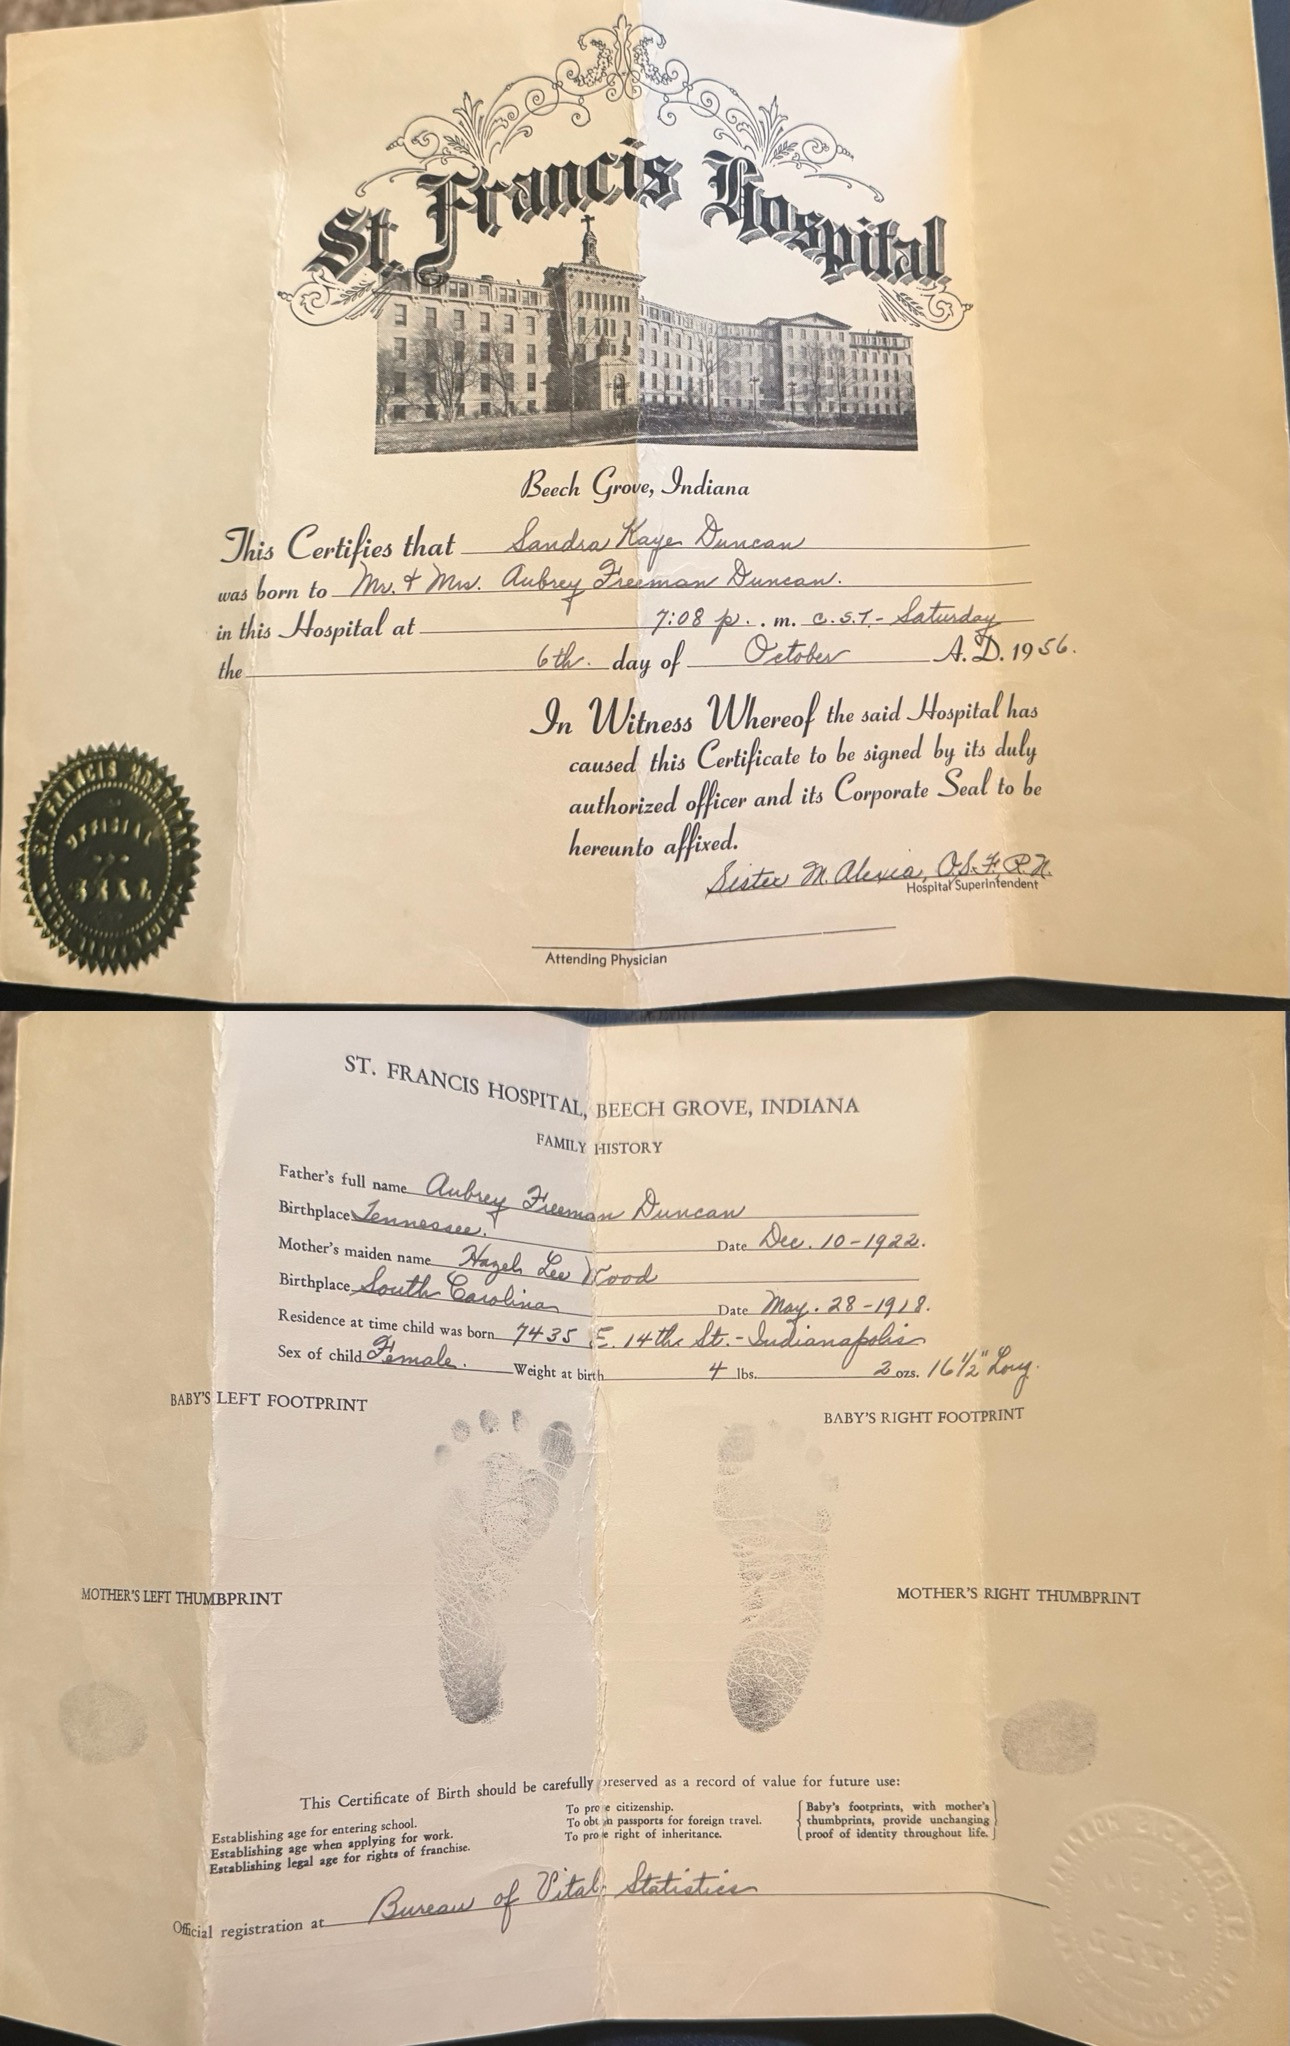 St. Francis Hospital
Beech Grove, Indiana
This Certifies that Sandra Kaye Duncan
was born to Mr. & Mrs. Aubrey Freeman Duncan.
in this Hospital at 7:08 p. . m. C.S.T. - Saturday
the 6th. day of October A. D. 1956.
In Witness Whereof the said Hospital has
caused this Certificate to be signed by its duly
authorized officer and its Corporate Seal to be
hereunto affixed.
Sister M. Alexia, O.S.F. R.N.
Hospital Superintendent
Attending Physician
ST. FRANCIS HOSPITAL
OFFICIAL
SEAL
BEECH GROVE, INDIANA
ST. FRANCIS HOSPITAL, BEECH GROVE, INDIANA
FAMILY HISTORY
Father's full name Aubrey Freeman Duncan
Birthplace Tennessee. Date Dec. 10-1922.
Mother's maiden name Hazel Lee Wood
Birthplace South Carolina Date May. 28-1918.
Residence at time child was born 7435 E. 14th St. - Indianapolis
Sex of child Female. Weight at birth 4 lbs. 2 ozs. 16 1/2" Long.
BABY'S LEFT FOOTPRINT
BABY'S RIGHT FOOTPRINT
MOTHER'S LEFT THUMBPRINT
MOTHER'S RIGHT THUMBPRINT
This Certificate of Birth should be carefully preserved as a record of value for future use:
Establishing age for entering school.
Establishing age when applying for work.
Establishing legal age for rights of franchise.
To prove citizenship.
To obtain passports for foreign travel.
To prove right of inheritance.
Baby's footprints, with mother's
thumbprints, provide unchanging
proof of identity throughout life.
Official registration at Bureau of Vital Statistics